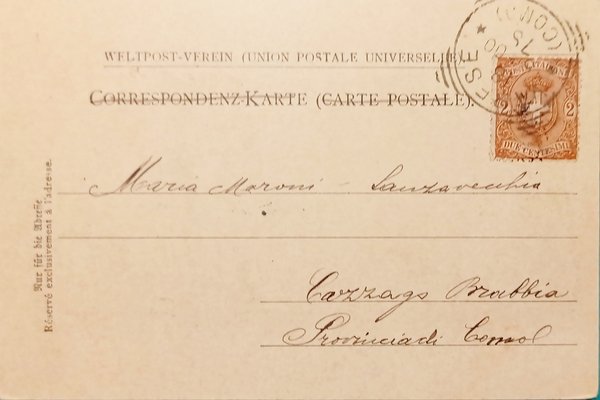 WELTPOST-VEREIN (UNION POSTALE UNIVERSELLE)
CORRESPONDENZ-KARTE (CARTE POSTALE).
(COMO)
2 2
DUE CENTESIMI
Maria Moroni - Lanzavecchia
Cazzago Brabbia
Provincia di
Nur für die Adresse
Réservé exclusivement à l'adresse.